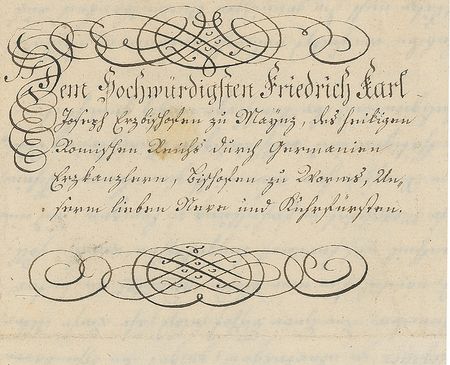 Dem Hochwürdigsten Friedrich Karl
Joseph Erzbischofen zu Maynz, des heiligen
Römischen Reichs durch Germanien
Erzkanzlern, Bischofen zu Worms, Un=
serm lieben Neve und Kuhrfürsten.